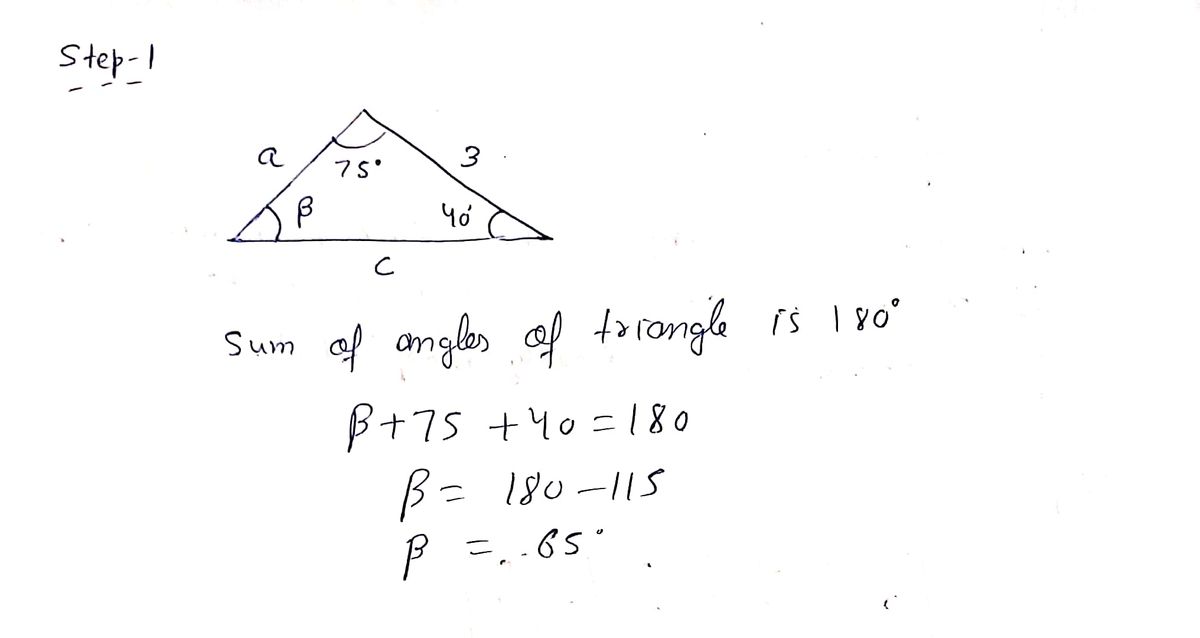 Step-1
a
75°
3
β
40°
c
Sum of angles of triangle is 180°
β+75 +40=180
β= 180-115
β = 65°